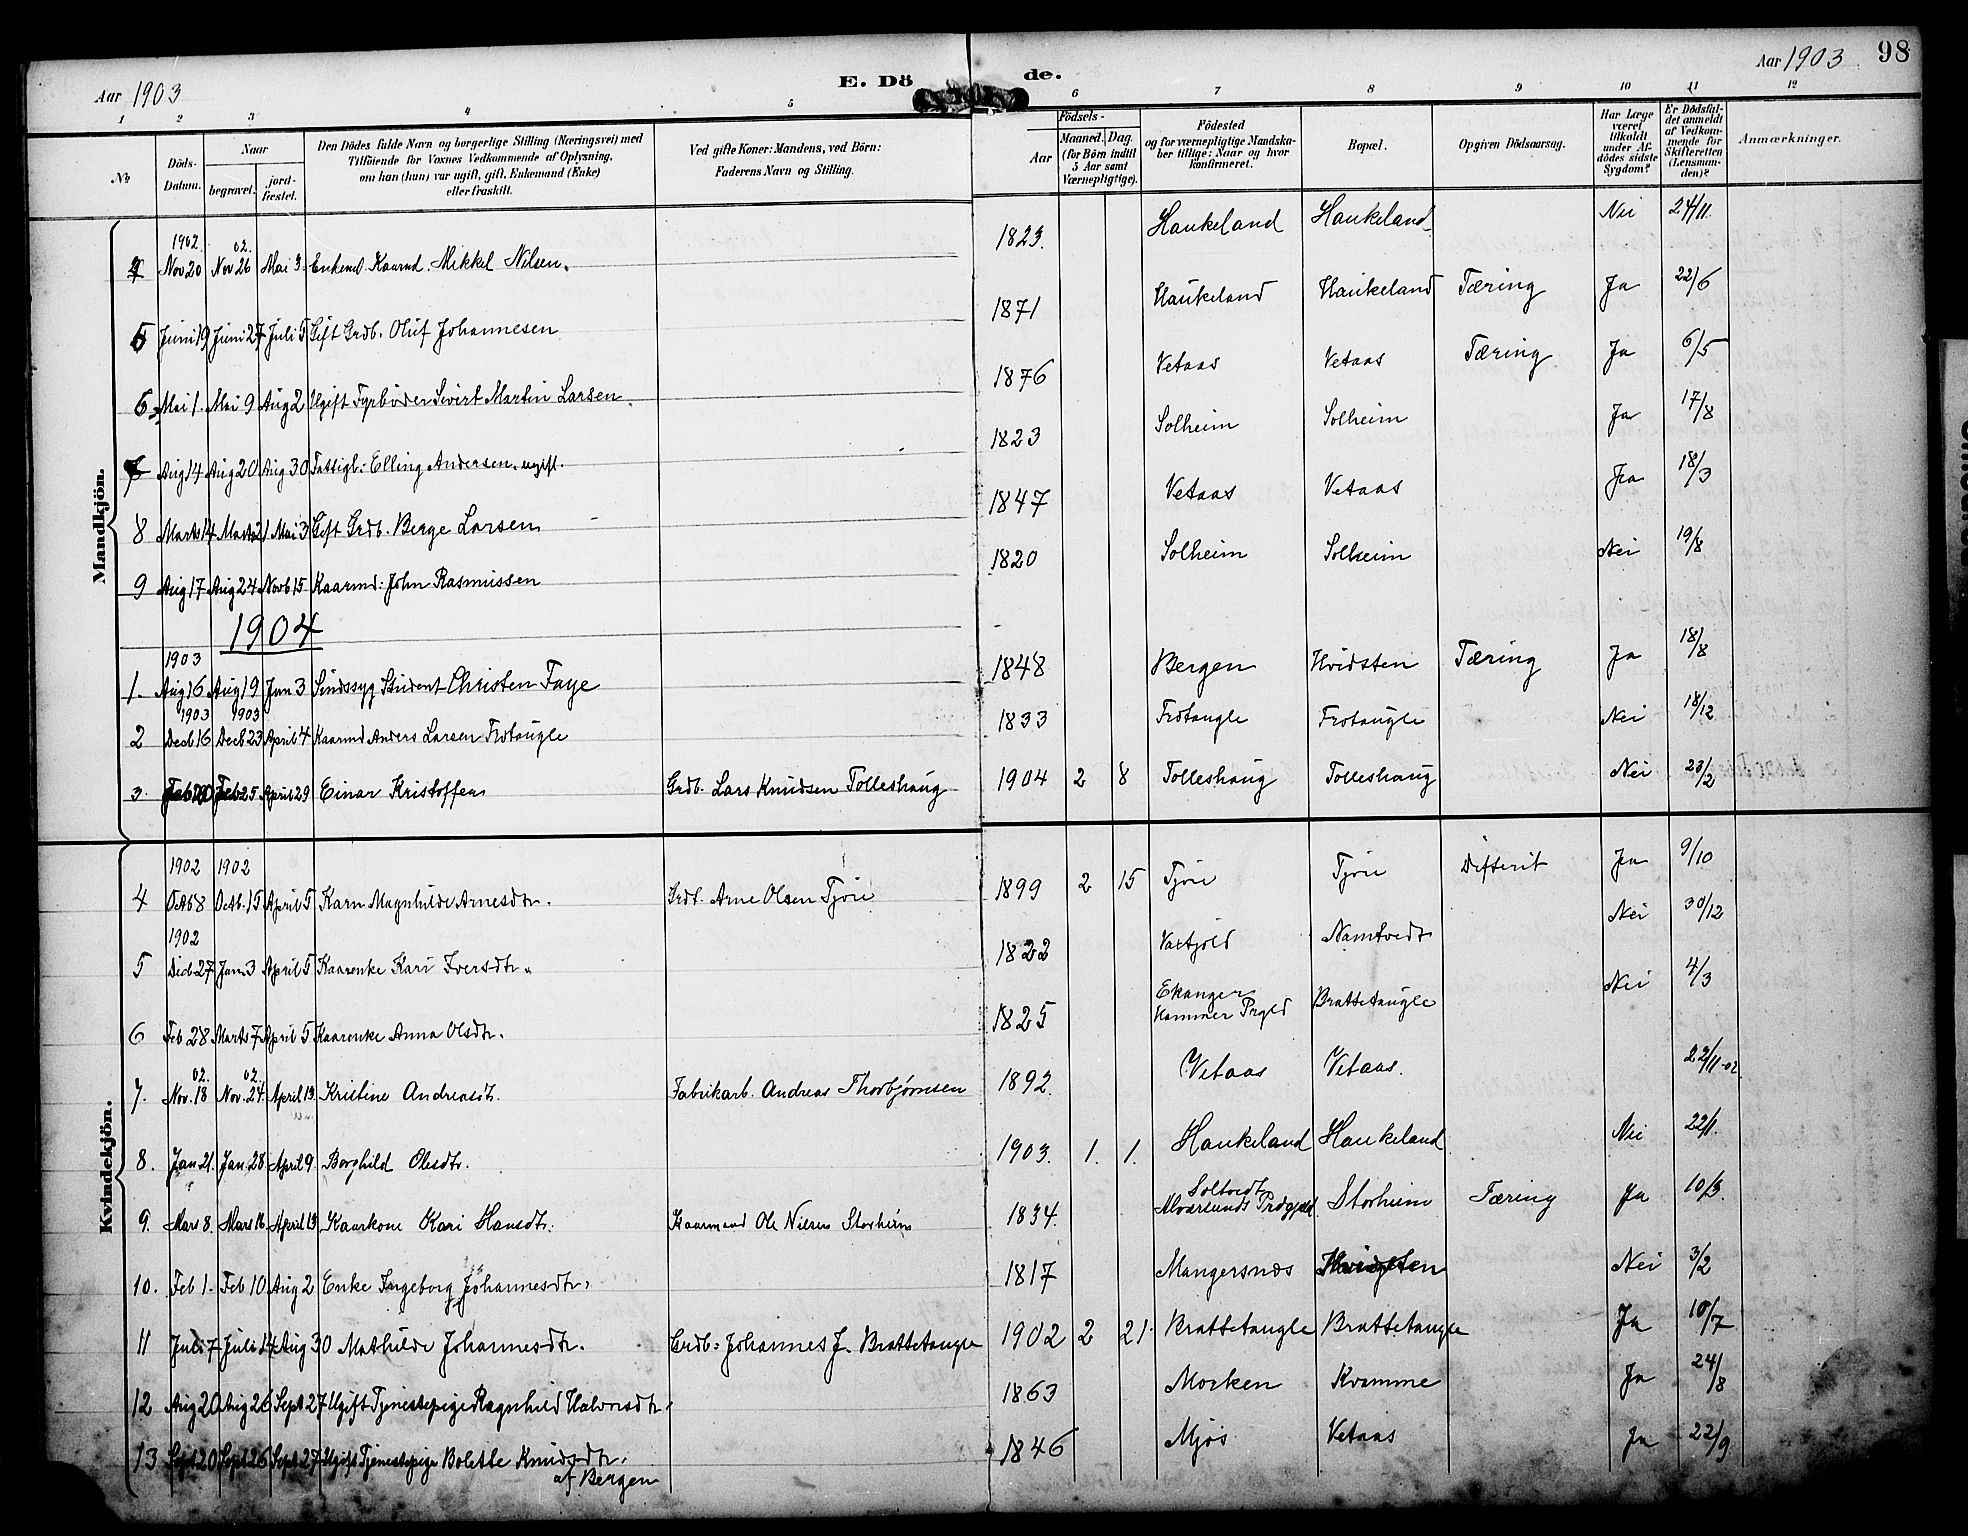 Aar 1903
E. Dö
de.
Aar 1903
98
1 2 3 4 5 6 7 8 9 10 11 12
№
Döds-Datum.
Naar
begravet.
jord-fæstet.
Den Dödes fulde Navn og borgerlige Stilling (Næringsvei) med
Tilföiende for Voxnes Vedkommende af Oplysning,
om han (hun) var ugift, gift, Enkemand (Enke)
eller fraskilt.
Ved gifte Koner: Mandens, ved Börn:
Faderens Navn og Stilling.
Födsels-
Aar
Maaned. Dag.
(for Börn indtil
5 Aar samt
Værnepligtige).
Födested
og for værnepligtige Mandska-
ber tillige: Naar og hvor
konfirmeret.
Bopæl.
Opgiven Dödsaarsag.
Har Læge
været
tilkaldt
under Af-
dödes sidste
Sygdom?
Er Dödsfal-
det anmeldt
af Vedkom-
mende for
Skifteretten
(Lensman-
den)?
Anmærkninger.
Mandkjön.
1902. 02.
4 Nov 20 Nov 26 Mai 3. Enkemd. Kaarmd. Mikkel Nilsen. 1823. Haukeland Haukeland Nei 24/11.
5 Juni 19 Juni 27 Juli 5 Gift Grdb. Oluf Johannesen 1871 Haukeland Haukeland Tæring Ja 22/6
6 Mai 1. Mai 9 Aug 2 Ugift Fyrböder Sivert Martin Larsen. 1876 Vetaas Vetaas Tæring Ja 6/5
7 Aug 14 Aug 20 Aug 30 Fattigl: Elling Andersen, ugift. 1823 Solheim Solheim Ja 17/8
8 Marts 14 Marts 21 Mai 3 Gift Grdb. Berge Larsen 1847 Vetaas Vetaas Ja 18/3
9 Aug 17 Aug 24 Novb 15 Kaarmd: John Rasmussen 1820 Solheim Solheim Nei 19/8
1904
1903
1. Aug 16 Aug 19 Jan 3 Sindssyg Student Christen Faye 1848 Bergen Hvidsten Tæring Ja 18/8
1903 1903
2 Decb 16 Decb 23 April 4 Kaarmd Anders Larsen Frotaugle 1833 Frotaugle Frotaugle Nei 18/12
3. Feb 20 Feb 25 April 29 Einar Kristoffer Grdb. Lars Knudsen Tolleshaug 1904 2 8 Tolleshaug Tolleshaug Nei 23/2
Kvindekjön.
1902 1902
4 Octb 8 Octb. 15 April 5 Karn Magnhilde Arnesdtr. Grdb. Arne Olsen Tjore 1899 2 15 Tjore Tjore Difterit Ja 9/10
1902
5 Decb 27 Jan 3 April 5 Kaarenke Kari Iversdtr. 1822 Namtvedt Nei 30/12
6 Feb 28 Marts 7 April 5 Kaarenke Anna Olsdtr. 1825 Ekanger Hammer Prgld Brattetaugle Nei 4/3
02. 02.
7. Nov. 18 Nov. 24. April 13. Kristine Andreasdt. Fabrikarb. Andreas Thorbjørnsen 1892. Vetaas Vetaas. 22/11-02
8. Jan 21. Jan. 28 April 9. Borghild Olesdtr. 1903. 1. 1. Haukeland Haukeland Nei 22/1.
9. Mars 8. Mars 16 April 13 Kaarkone Kari Hansdtr. Kaarmand Ole Nilsen Storheim 1834. Soltvedt Alversunds Prdgjæld Storheim Tæring Ja 10/3.
10. Feb 1. Feb 10 Aug 2 Enke Ingeborg Johannesdtr. 1817 Mangersnæs Hvidsten Nei 3/2
11 Juli 7 Juli 14 Aug 30 Mathilde Johannesdtr. Grdb: Johannes J. Brattetaugle 1902 2 21. Brattetaugle Brattetaugle Ja 10/7
12 Aug 20 Aug 26 Sept 27 Ugift Tjenestepige Ragnhild Halvorsdtr. 1863 Morken Kvamme Ja 24/8
13 Sept 20 Sept 26 Sept 27 Ugift Tjenestepige Bolette Knudsdtr. af Bergen 1846 Mjøs Vetaas Ja 22/9